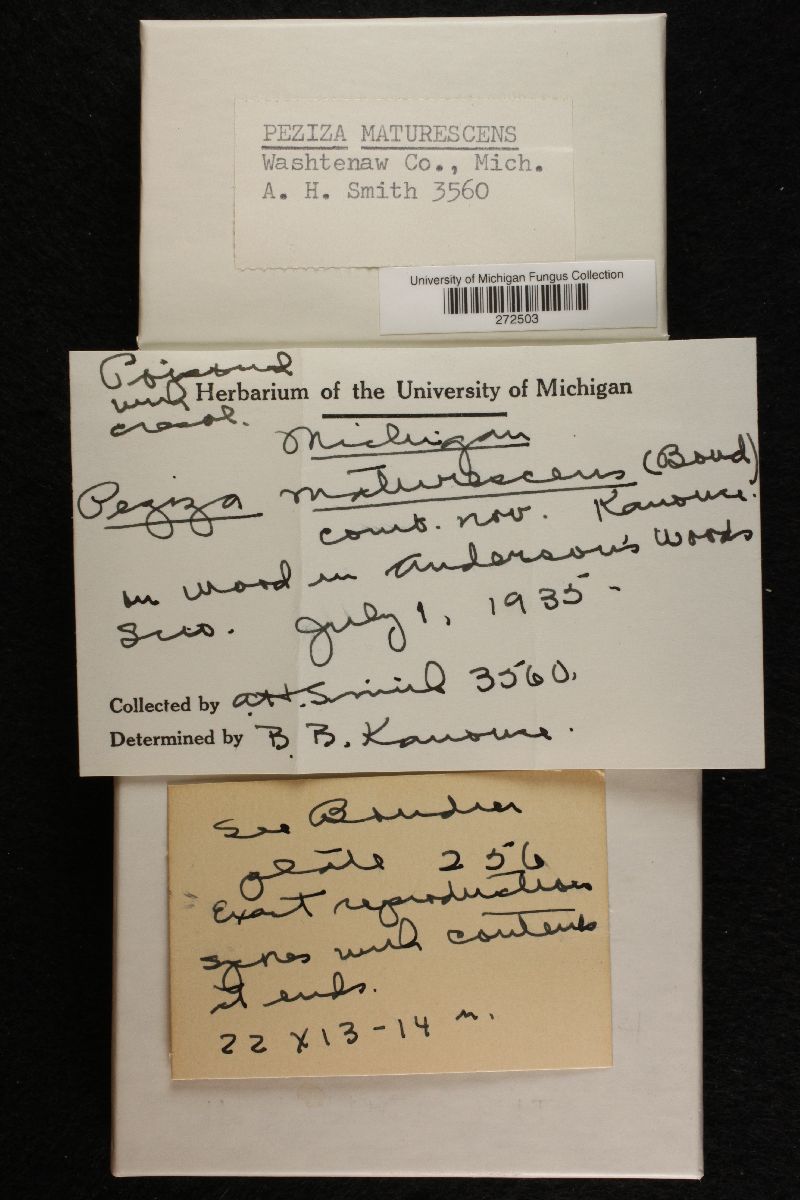 PEZIZA MATURESCENS
Washtenaw Co., Mich.
A. H. Smith 3560
University of Michigan Fungus Collection
272503
Poisoned
with
cresol.
Herbarium of the University of Michigan
Michigan
Peziza maturescens (Boud)
comb. nov. Kanouse.
on wood in Anderson's Woods
Scio. July 1, 1935 -
Collected by A.H. Smith 3560.
Determined by B. B. Kanouse.
See Boudier
plate 256
Exact reproduction
spores with contents
at ends.
22 X 13-14 µ.